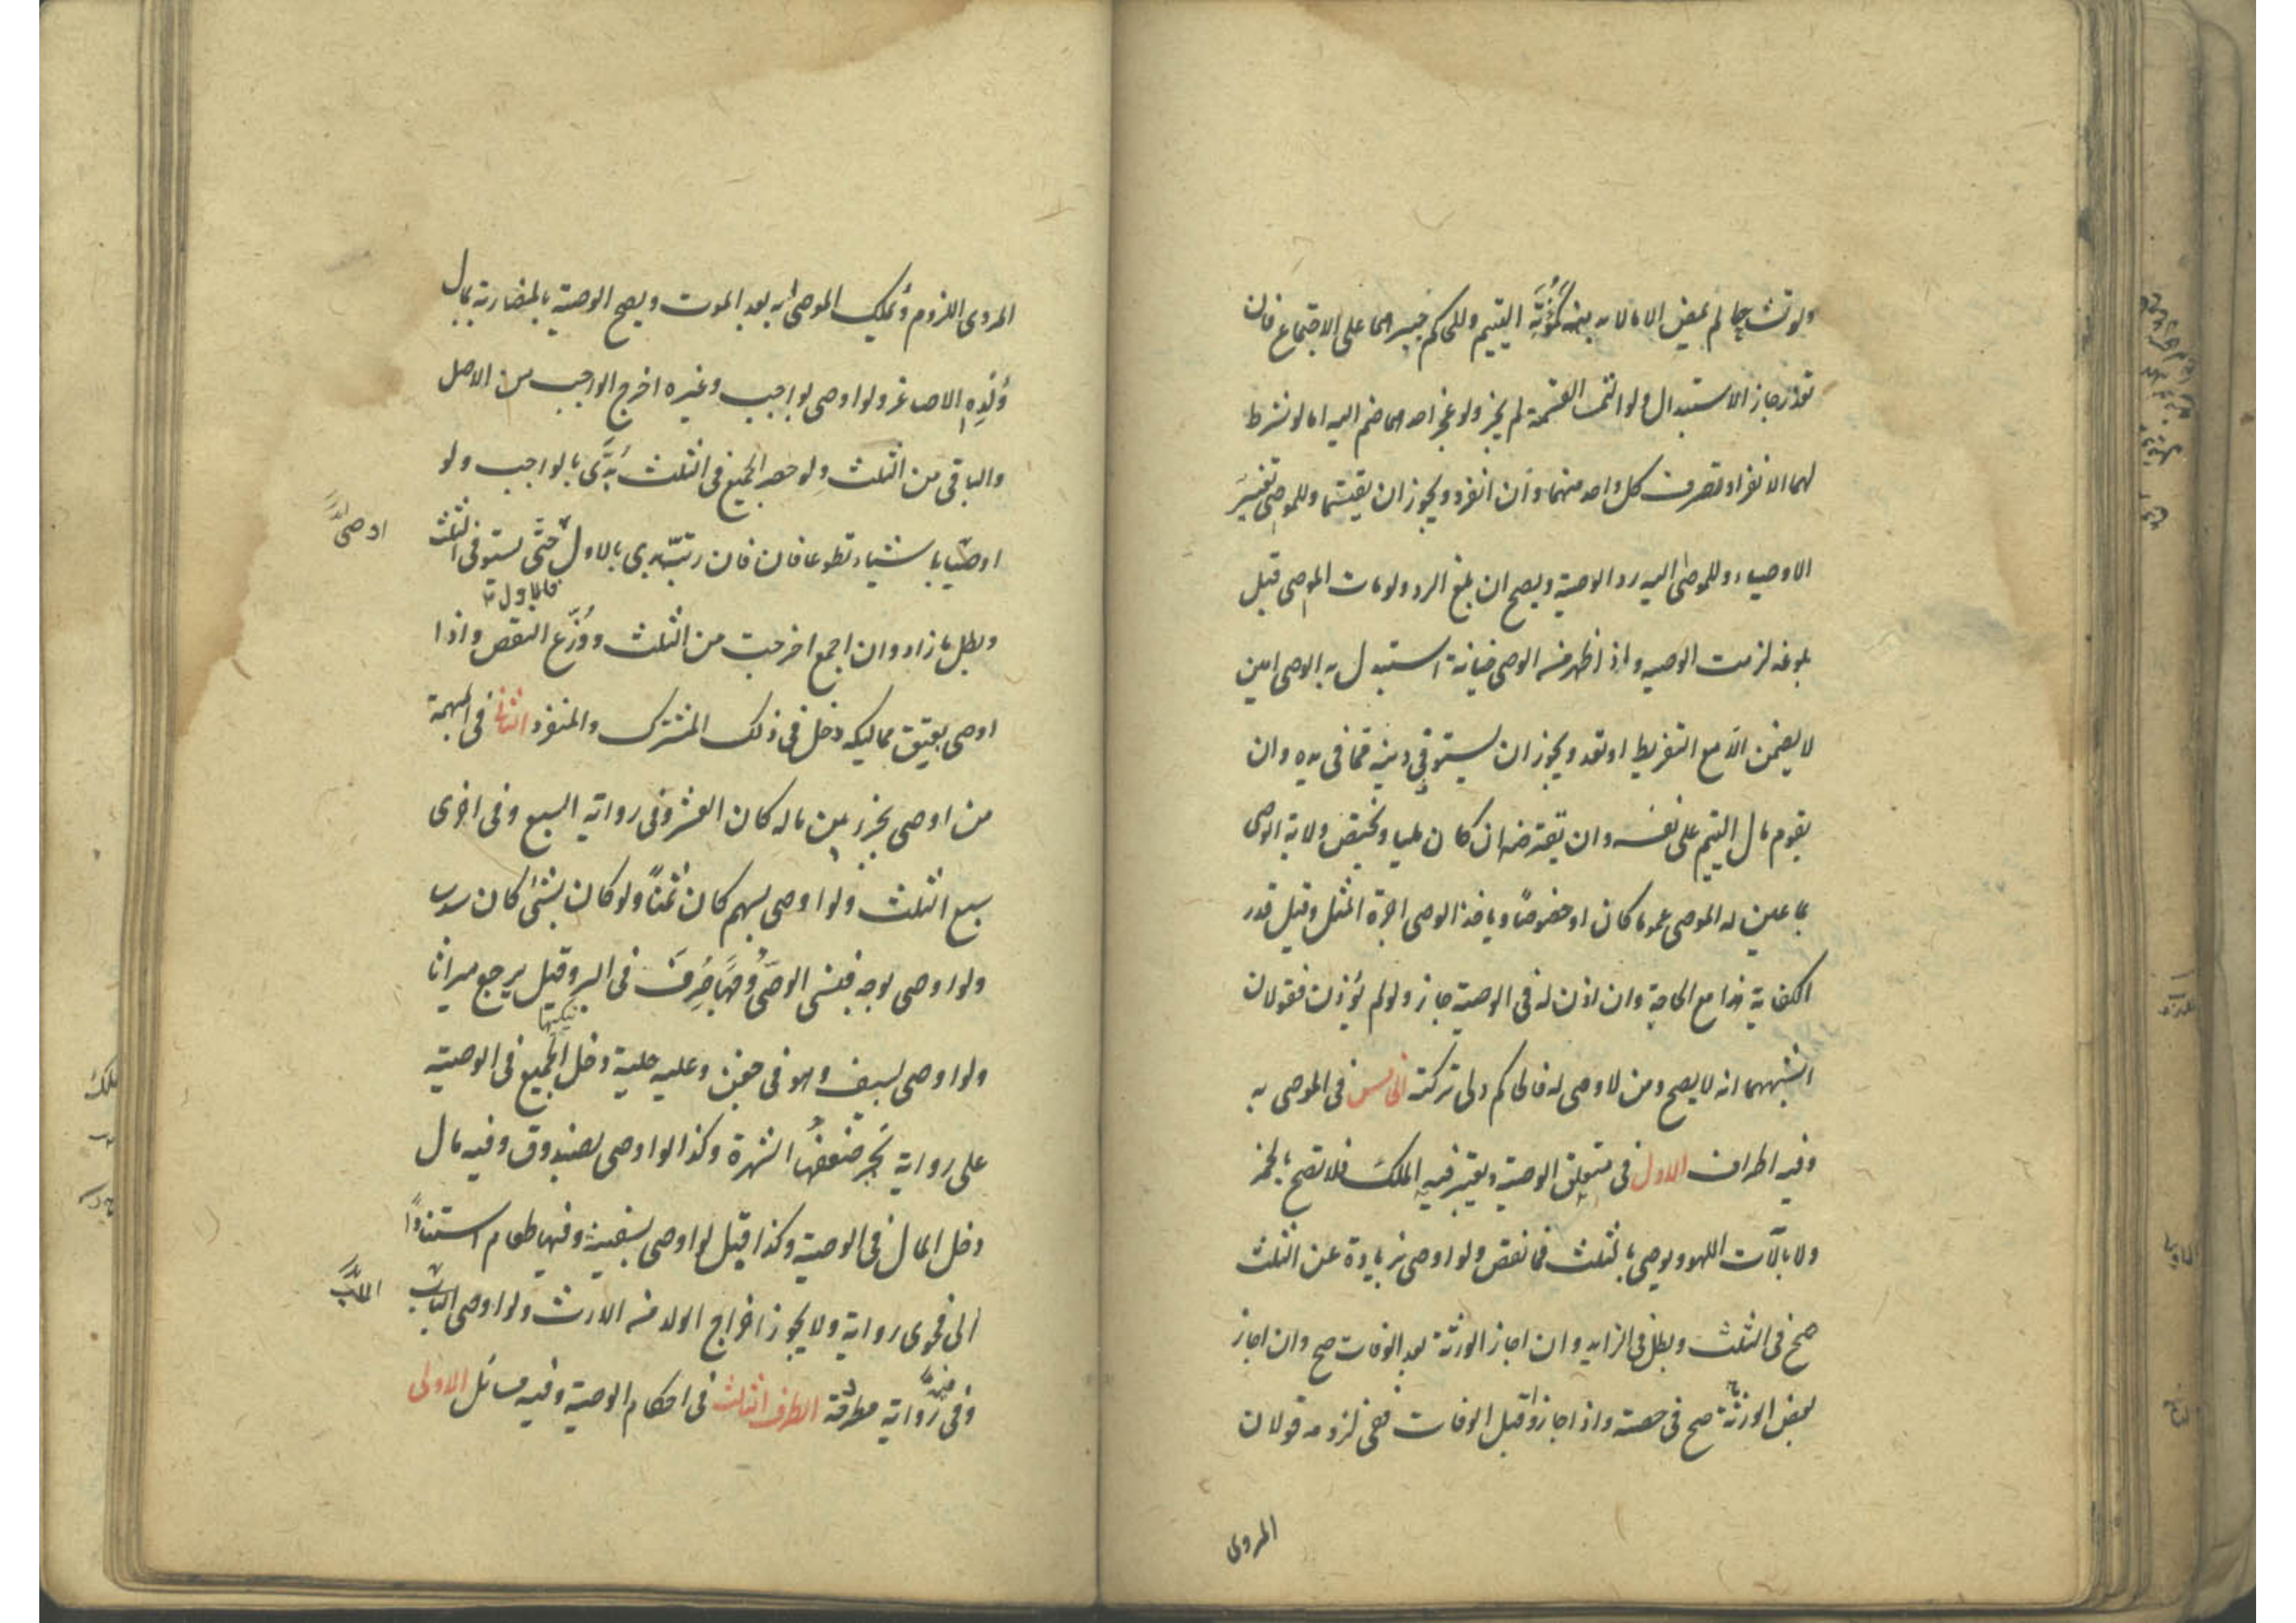 ولو تشاحا لم يمض الا ما لا بد منه كمؤنة اليتيم وللحاكم جبرهما على الاجتماع فان
تعذر جاز الاستبدال ولو التمسا القسمة لم يجز ولو عجز احدهما ضم اليه اما لو شرط
لهما الانفراد تصرف كل واحد منهما وان انفرد ويجوز ان يقتسما وللموصى تغيير
الاوصياء وللموصى اليه رد الوصية ويصح ان بلغ الرد ولو مات الموصى قبل
بلوغه لزمت الوصيه واذا ظهر منه الوصى خيانة استبدل به الوصى امين
لا يضمن الا مع التفريط او تعد ويجوز ان يستوفى دينه مما فى يده وان
يقوم مال اليتيم على نفسه وان يقترضه ان كان مليا ويختص ولاية الوصى
بما عين له الموصى عموما كان او خصوصا وياخذ الوصى اجرة المثل وقيل قدر
الكفاية هذا مع الحاجة وان اذن له فى الوصية جاز ولو لم يؤذن فقولان
اشبههما انه لا يصح ومن لا وصى له فالحاكم ولى تركته الخامس فى الموصى به
وفيه اطراف الاول فى متعلق الوصية ويعتبر فيه الملك فلا تصح بالخمر
ولا بآلات اللهو ويوصى بالثلث فما نقص ولو اوصى بزيادة عن الثلث
صح فى الثلث وبطل فى الزايد وان اجاز الورثة بعد الوفات صح وان اجاز
بعض الورثة صح فى حصته واذا اجازوا قبل الوفات ففى لزومه قولان
المروى
المروى اللزوم ويملك الموصى به بعد الموت ويصح الوصية بالمضاربة بمال
ولده الاصاغر ولو اوصى بواجب وغيره اخرج الواجب من الاصل
والباقى من الثلث ولو حصر الجميع فى الثلث بدى بالواجب ولو
اوصى باشياء تطوعا فان فان رتب بدى بالاول حتى يستوفى الثلث
فالاول
وبطل ما زاد وان جمع اخرجت من الثلث ووزع النقص واذا
اوصى بعتق مماليكه دخل فى ذلك المشترك والمنفرد الثانى فى المبهمة
من اوصى بجزء من ماله كان العشر وفى رواية السبع وفى اخرى
سبع الثلث ولو اوصى بسهم كان ثمنا ولو كان بشئ كان سدسا
ولو اوصى بوجه فنسى الوصى وجها صرف فى البر وقيل يرجع ميراثا
ولو اوصى بسيف وهو فى جفن وعليه حلية دخل الجميع فى الوصية
على رواية يجبر ضعفها الشهرة وكذا لو اوصى بصندوق وفيه مال
دخل المال فى الوصية وكذا قيل لو اوصى بسفينة وفيها طعام استنادا
الى فحوى رواية ولا يجوز اخراج الولد منه الارث ولو اوصى الاب
وفى رواية مطرحة الطرف الثالث فى احكام الوصية وفيه مسائل الاولى